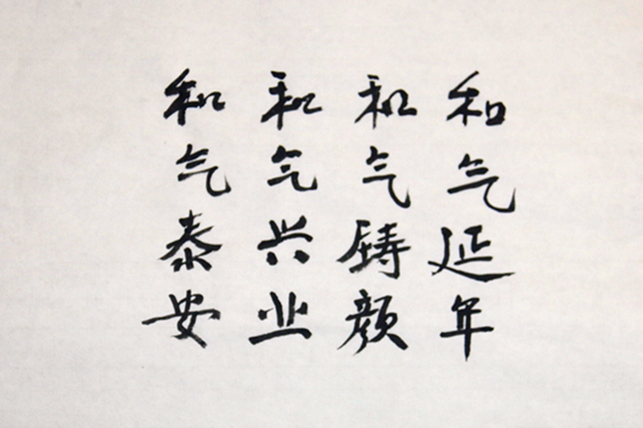 和气延年
和气铸颜
和气兴业
和气泰安